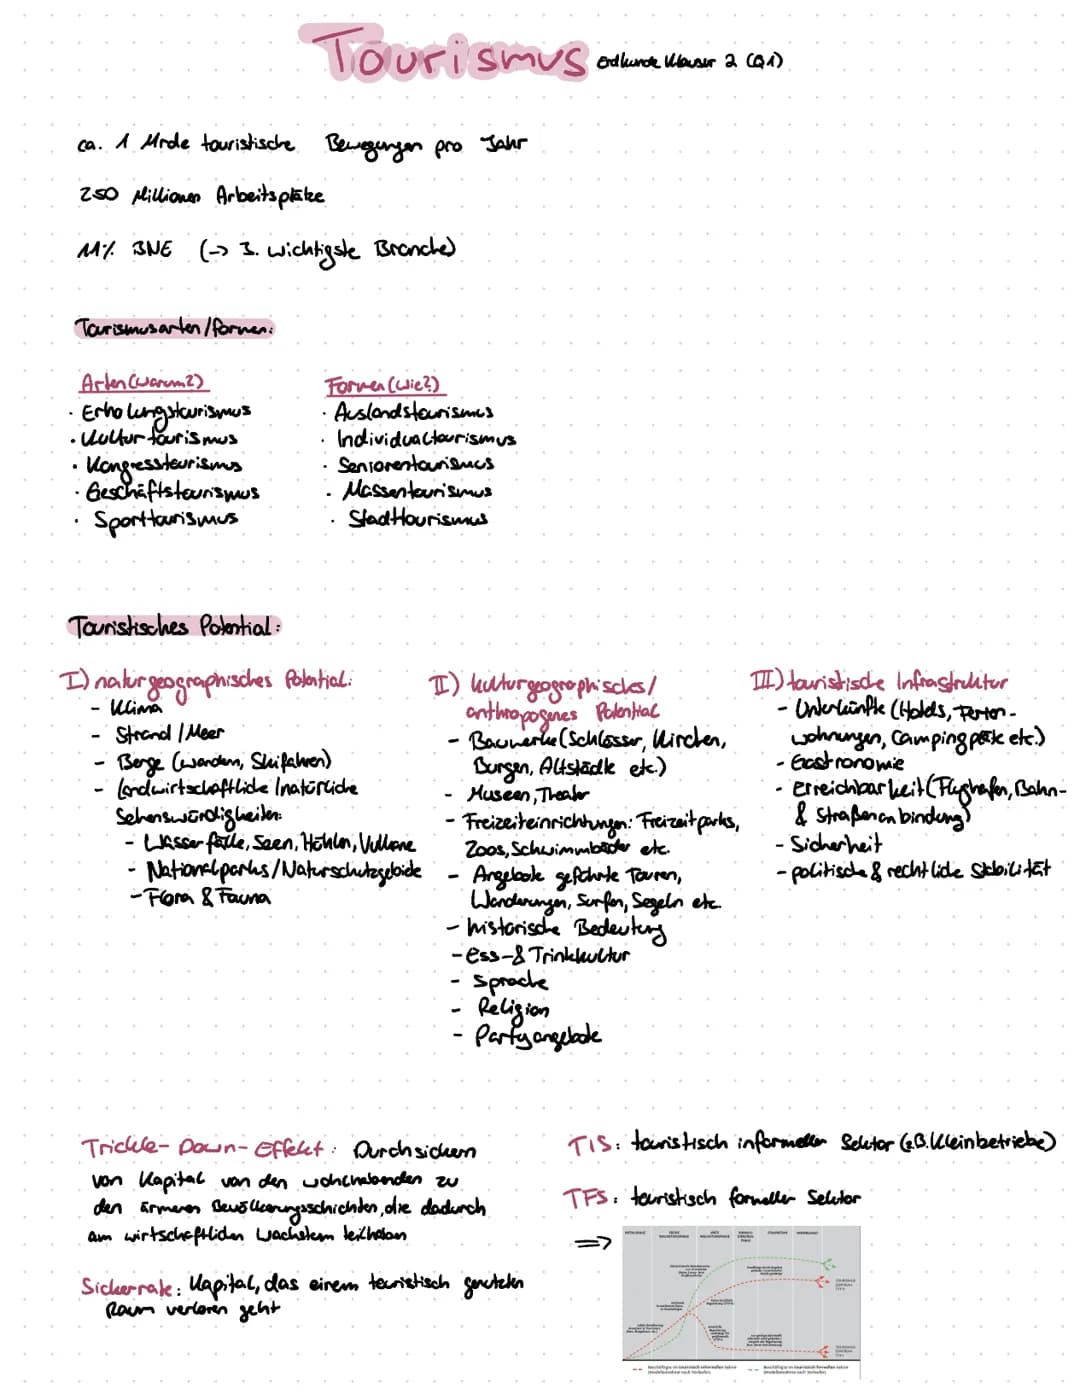 Tourismus Erdkunde Klausur 2 (Q1)
ca. 1 Mrde touristische Bewegungen pro Jahr
250 Millionen Arbeitsplätze
11% BNE (-> 3. wichtigste Branche)
Tourismusarten/formen:
Arten (warum?)
· Erholungstourismus
· Kulturtourismus
· Kongresstourismus
· Geschäftstourismus
· Sporttourismus
Formen (wie?)
· Auslandstourismus
· Individualtourismus
· Seniorentourismus
· Massentourismus
· Stadttourismus
Touristisches Potential:
I) naturgeographisches Potential:
- Klima
- Strand / Meer
- Berge (wandern, Skifahren)
- landwirtschaftliche / natürliche
Sehenswürdigkeiten:
- Wasserfälle, Seen, Höhlen, Vulkane
- Nationalparks/Naturschutzgebiede
- Flora & Fauna
II) kulturgeographisches/
anthropogenes Potential
- Bauwerke (Schlösser, Kirchen,
Burgen, Altstädte etc.)
- Museen, Theater
- Freizeiteinrichtungen: Freizeitparks,
Zoos, Schwimmbäder etc.
- Angebote geführte Touren,
Wanderungen, Surfen, Segeln etc.
- historische Bedeutung
- Ess- & Trinkkultur
- Sprache
- Religion
- Partyangebote
III) touristische Infrastruktur
- Unterkünfte (Hotels, Ferien-
wohnungen, Campingplätze etc.)
- Gastronomie
- Erreichbarkeit (Flughafen, Bahn-
& Straßenanbindung)
- Sicherheit
- politische & rechtliche Stabilität
Trickle-Down-Effekt: Durchsickern
von Kapital von den wohlhabenden zu
den ärmeren Bevölkerungsschichten, die dadurch
am wirtschaftlichen Wachstum teilhaben
Sickerrate: Kapital, das einem touristisch genutzten
Raum verloren geht
TIS: touristisch informeller Sektor (z.B. Kleinbetriebe)
TFS: touristisch formeller Sektor
=>